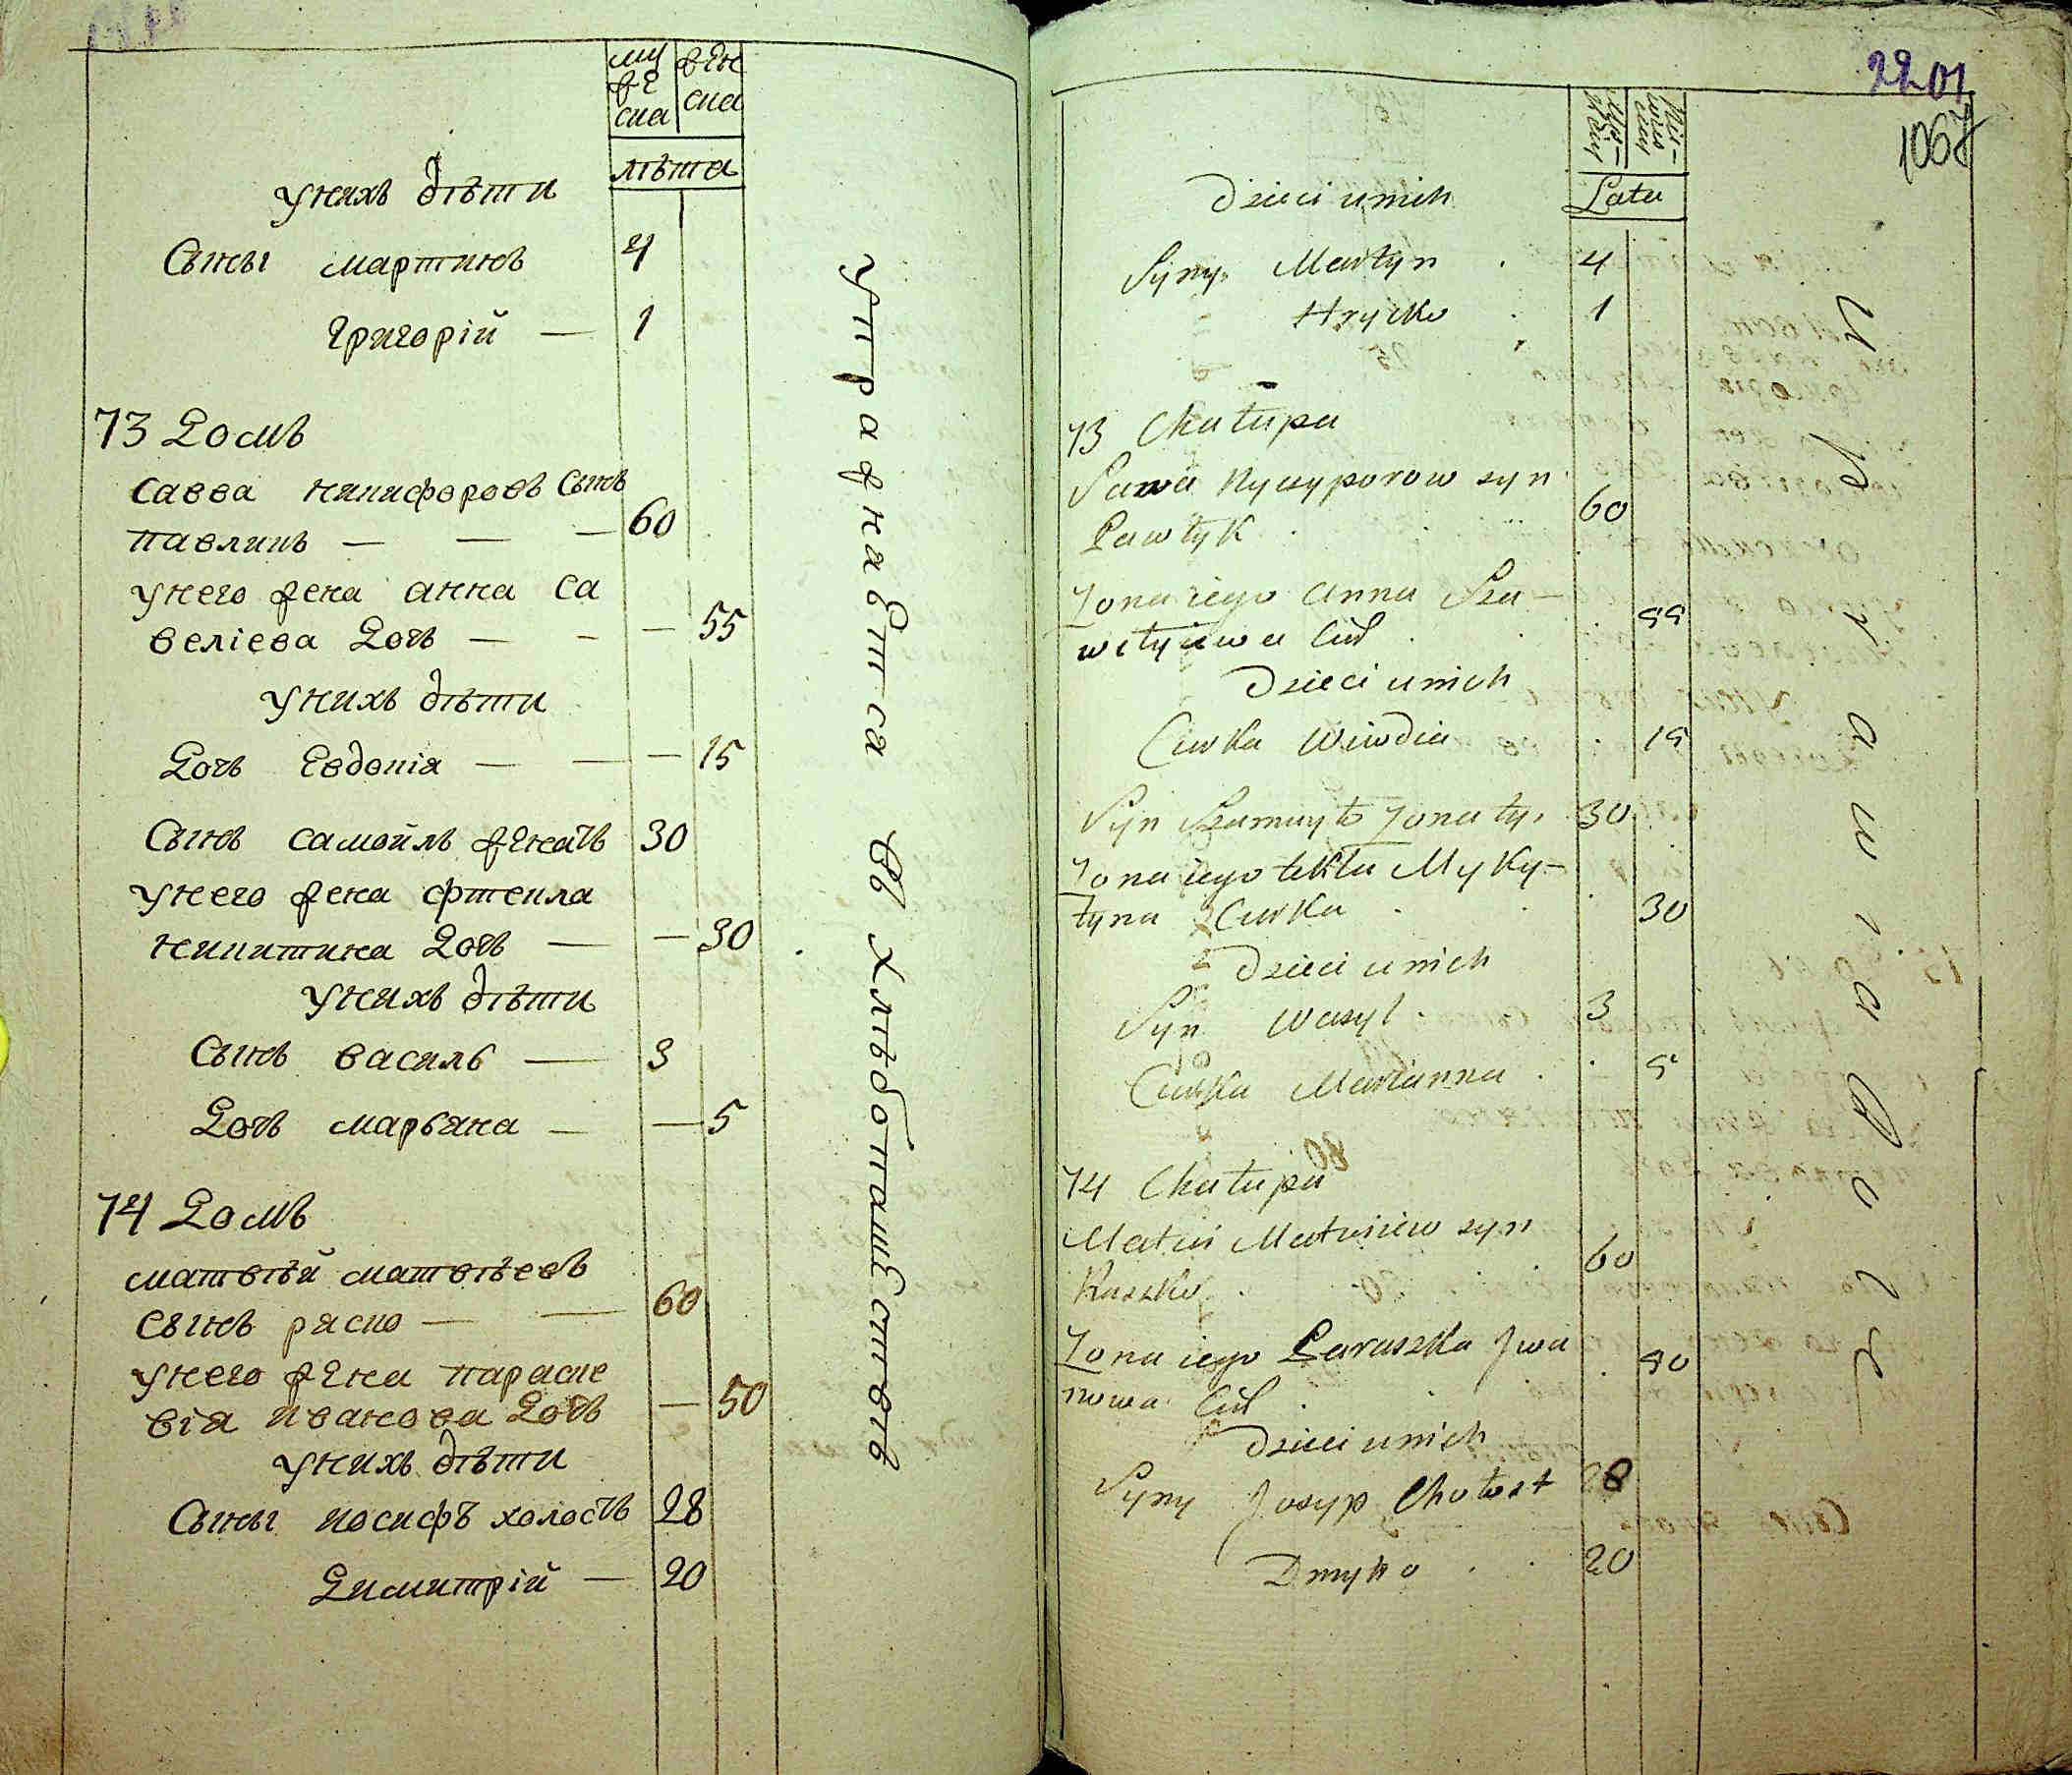 му же ска
жен ска
лѣта
у них дѣти
Сыны мартинъ 4
григорій — 1
73 Домъ
савва никифоровъ сынъ
павликъ — — — 60
у него жена анна са
веліева Дочь — — — 55
у нихъ дѣти
Дочь Евдокія — — — 15
Сынъ самойлъ женатъ 30
у него жена фтекла
никитина Дочь — — 30
у нихъ дѣти
Сынъ василь — 3
Дочь марьяна — — 5
74 Домъ
матвѣй матвѣеевъ
сынъ ряско — — 60
у него жена параске
вія иванова Дочь — 50
у нихъ дѣти
Сыны иосифъ холостъ 28
Димитрій — 20
упражнаетса въ хлѣбопашествѣ
2201
1067
Latu
Dzieci unich
Syny Martyn . 4
Hrycko . 1
73 Chałupa
Sawa Nyczyporow syn
Pawłyk . 60
Zona iego Anna Sza–
wełyiowa Cur . 55
Dzieci unich
Curka Wiwdia . 15
Syn Szamuyło Zonaty. 30
Zona iego tekla Myky–
tyna Curka . 30
Dzieci unich
Syn Wasyl . 3
Curka Marianna . 5
74 Chałupa
Matwi Matwiiew syn
Raszko . 60
Zona iego Paraszka Jwa
nowa Cur . 50
Dzieci unich
Syny Josyp Chołost 28
Dmytro . 20